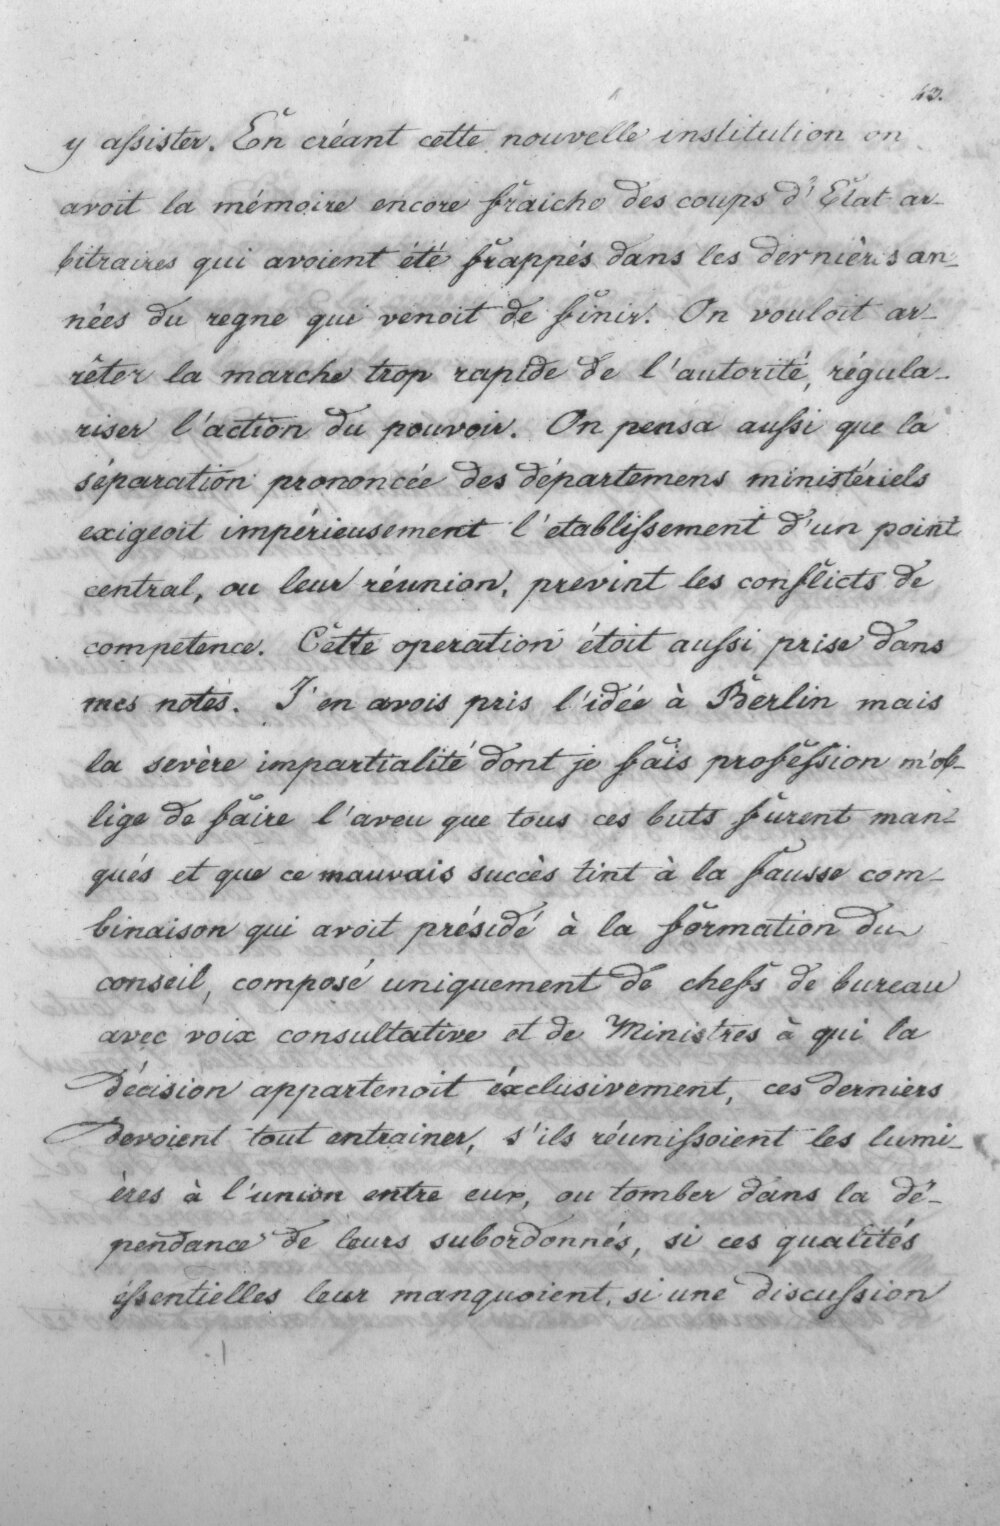 43.
y assister. En créant cette nouvelle institution on
avoit la mémoire encore fraiche des coups d'Etat ar-
bitraires qui avoient été frappés dans les dernières an-
nées du regne qui venoit de finir. On vouloit ar-
rêter la marche trop rapide de l'autorité, régula-
riser l'action du pouvoir. On pensa aussi que la
séparation prononcée des départemens ministériels
exigeoit impérieusement l'etablissement d'un point
central, ou leur réunion, prevint les conflicts de
competence. Cette operation étoit aussi prise dans
mes notes. J'en avois pris l'idée à Berlin mais
la sevère impartialité dont je fais profession m'ob-
lige de faire l'aveu que tous ces buts furent man-
qués et que ce mauvais succès tint à la fausse com-
binaison qui avoit présidé à la formation du
conseil, composé uniquement de chefs de bureau
avec voix consultative et de Ministres à qui la
décision appartenoit éxclusivement, ces derniers
devoient tout entrainer, s'ils réunissoient les lumi-
ères à l'union entre eux, ou tomber dans la dé-
pendance de leurs subordonnés, si ces qualités
éssentielles leur manquoient, si une discussion